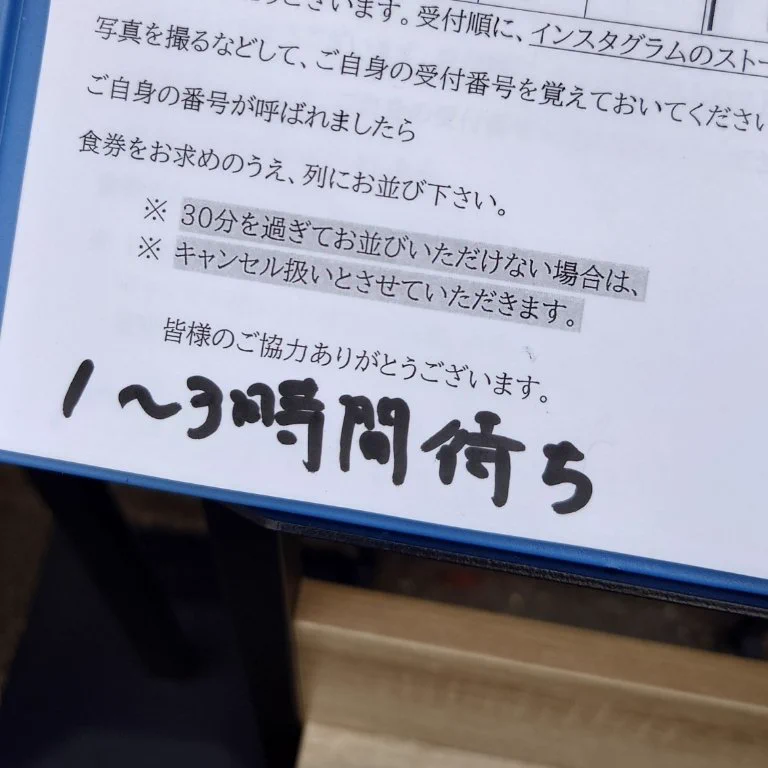 ございます。受付順に、インスタグラムのストー
写真を撮るなどして、ご自身の受付番号を覚えておいてください
ご自身の番号が呼ばれましたら
食券をお求めのうえ、列にお並び下さい。
※ 30分を過ぎてお並びいただけない場合は、
※ キャンセル扱いとさせていただきます。
皆様のご協力ありがとうございます。
1～3時間待ち